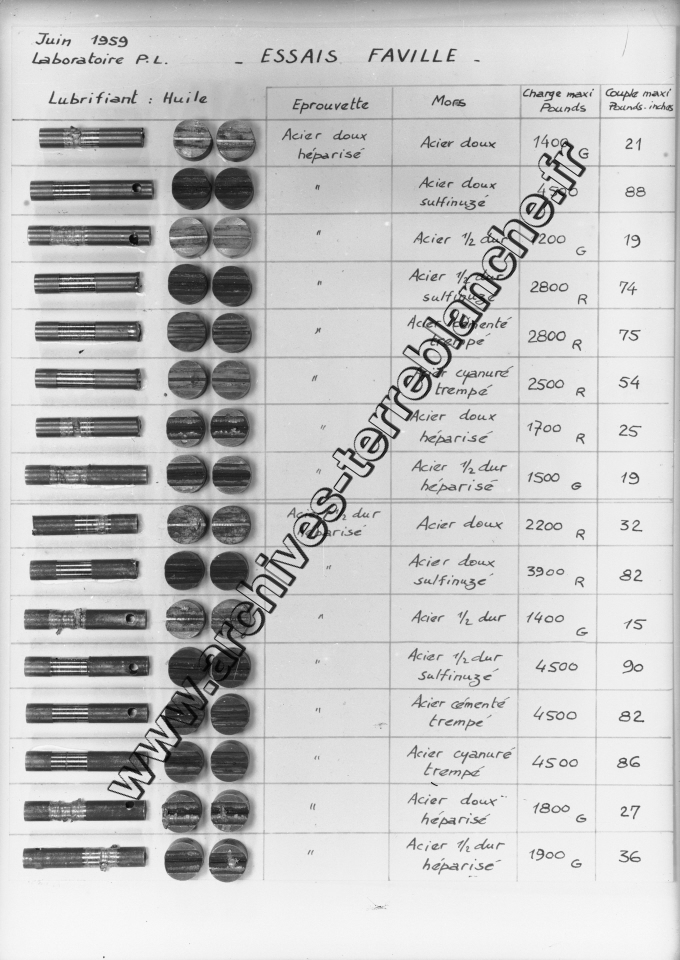 Juin 1959
Laboratoire P.L.
- ESSAIS FAVILLE -
Lubrifiant : Huile
Eprouvette Mors Charge maxi Pounds Couple maxi Pounds-inches
Acier doux héparisé Acier doux 1400 G 21
" Acier doux sulfinuzé 4500 88
" Acier 1/2 dur 1200 G 19
" Acier 1/2 dur sulfinuzé 2800 R 74
" Acier cémenté trempé 2800 R 75
" Acier cyanuré trempé 2500 R 54
" Acier doux héparisé 1700 R 25
" Acier 1/2 dur héparisé 1500 G 19
Acier 1/2 dur héparisé Acier doux 2200 R 32
" Acier doux sulfinuzé 3900 R 82
" Acier 1/2 dur 1400 G 15
" Acier 1/2 dur sulfinuzé 4500 90
" Acier cémenté trempé 4500 82
" Acier cyanuré trempé 4500 86
" Acier doux héparisé 1800 G 27
" Acier 1/2 dur héparisé 1900 G 36
www.archives-terreblanche.fr